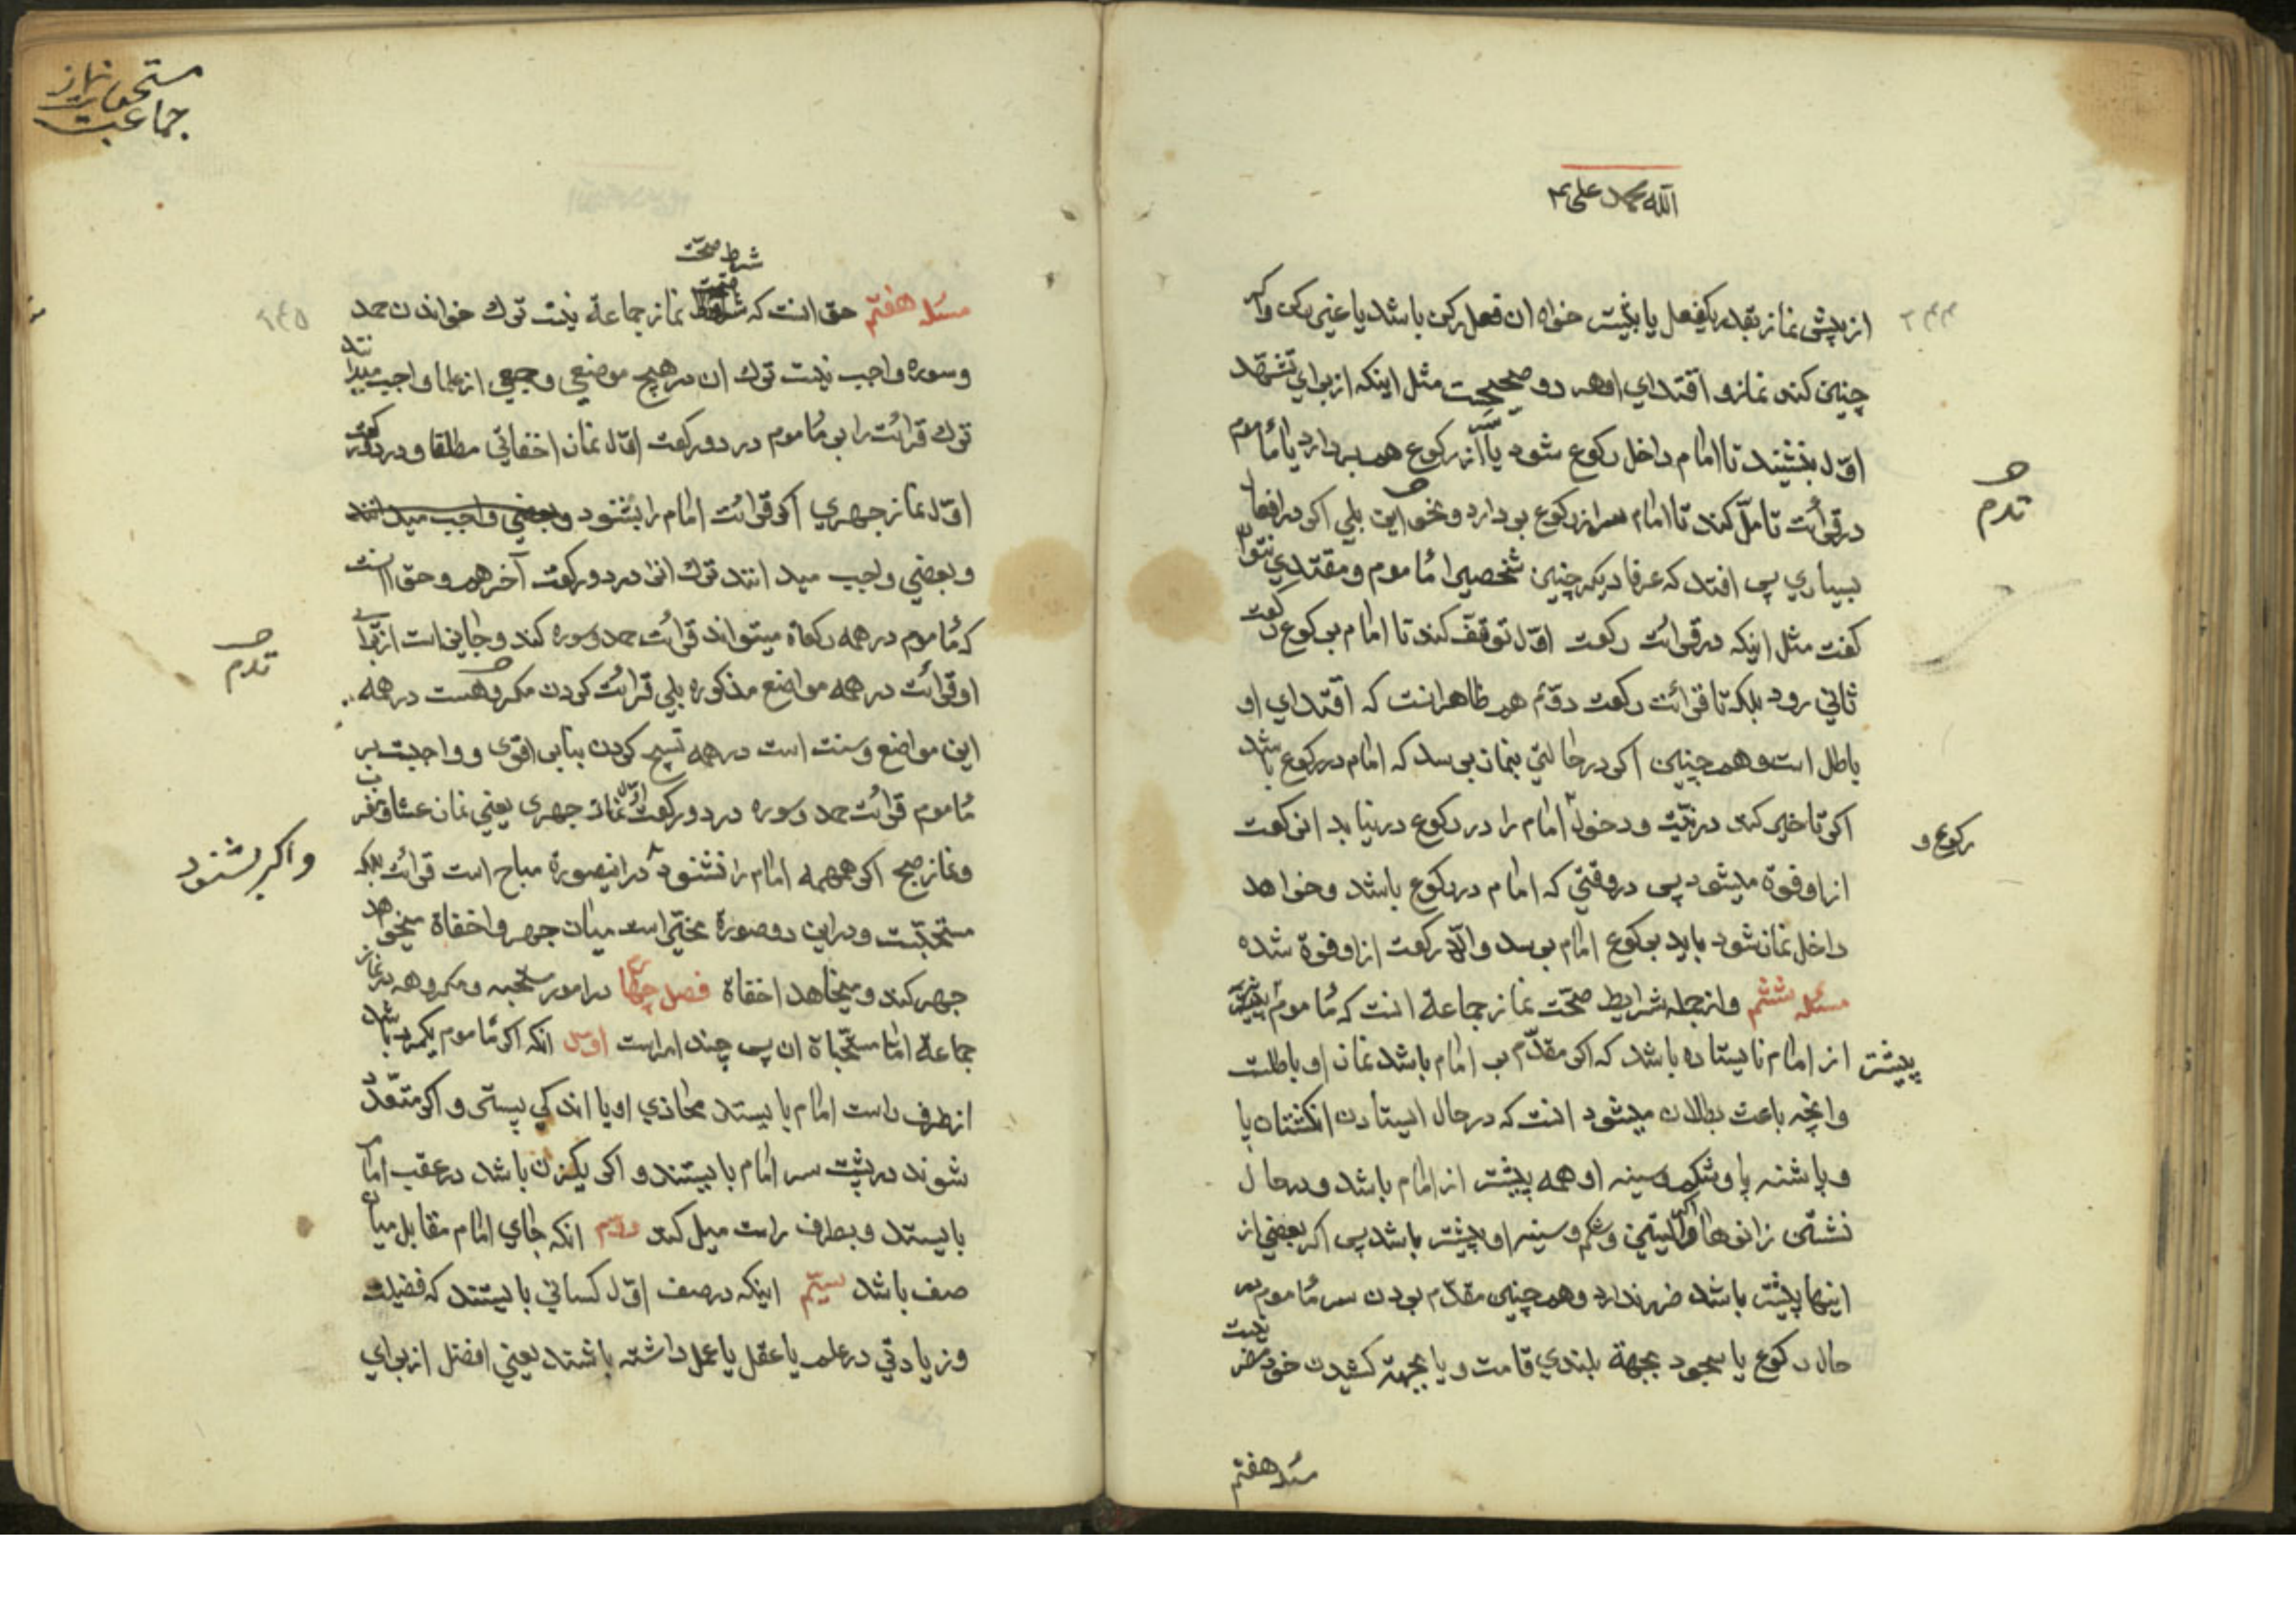 الله محمد علی
از پیش نماز بقدر یکفعل یا بیشتر خواه ان فعل رکن باشد یا غیر رکن واکر
چنین کند نماز و اقتدای او هر دو صحیحست مثل اینکه از برای تشهد
اول بنشیند تا امام داخل رکوع شود یا سر از رکوع هم بردارد یا مأموم
در قرائت تامّل کند تا امام سر از رکوع بردارد و نحو این بلی اکر در افعال
بسیاری پس افتد که عرفا دیکر چنین شخصیرا مأموم و مقتدی نتوان
کفت مثل اینکه در قرائت رکعت اوّل توقّف کند تا امام برکوع رکعت
ثانی رود بلکه تا قرائت رکعت دوّم هم ظاهر انست که اقتدای او
باطل است و همچنین اکر در حالتی بنماز برسد که امام در رکوع باشد
اکر تاخیر کند در نیّت و دخول امام را در رکوع در نیابد ان رکعت
رکوع و
از او فوة میشود پس در وقتی که امام در رکوع باشد و خواهد
داخل نماز شود باید برکوع امام برسد والّا رکعت از او فوة شده
مسئله ششم و از جمله شرایط صحّت نماز جماعة انست که مأموم پیشتر
پیشتر از امام نایستاده باشد که اکر مقدّم بر امام باشد نماز او باطلست
وانچه باعث بطلان میشود انست که در حال ایستادن انکشتان پا
و پاشنه پا و شکم و سینه او همه پیشتر از امام باشد و در حال
نشتن زانوها و الیتین و شکم و سینه او پیشتر باشد پس اکر بعضی از
اینها پیشتر باشد ضرر ندارد و همچنین مقدّم بودن سر مأموم در
حال رکوع یا سجود بجهة بلندی قامت و یا بجهة کشیدن خود مضر نیست
مسئله هفتم
مستحبات نماز
جماعت
شرط صحّت
مسئله هفتم حق انست که نماز جماعة نیست ترك خواندن حمد
وسوره واجب نیست ترك ان در هیچ موضعی و جمعی از علما واجب میدانند
ترك قرائت را بر مأموم در دو رکعت اوّل نماز اخفاتی مطلقا و در دو رکعت
اوّل نماز جهری اکر قرائت امام را بشنود وبعضی واجب میدانند
وبعضی واجب میدانند ترك انرا در دو رکعت آخر هم و حق انست
که مأموم در همه رکعاة میتواند قرائت حمد و سوره کند و جایز است از برای
او قرائت در همه مواضع مذکوره بلی قرائت کردن مکروهست در همه
این مواضع و سنت است در همه تسبیح کردن بنابر اقوی و واجبست بر
مأموم قرائت حمد و سوره در دو رکعت اوّل نماز جهری یعنی نماز عشا و مغرب
و نماز صبح اکر همهمه امام را نشنود در انیصورة مباح است قرائت بلکه
و اکر بشنود
مستحبّست و در این دو صورة مخیّر است میان جهر و اخفاة میخواهد
جهر کند و میخاهد اخفاة فصل چهارم در امور مستحبه و مکروهه در نماز
جماعة امّا مستحباة ان پس چند امر است اول انکه اکر مأموم یکمرد باشد
از طرف راست امام بایستد محاذی او یا اندکی پستر و اکر متعدّد
شوند در پشت سر امام بایستند و اکر یکزن باشد در عقب امام
بایستد و بطرف راست میل کند دویّم انکه جای امام مقابل میان
صف باشد سیّم اینکه در صف اوّل کسانی بایستند که فضیلت
و زیادتی در علم یا عقل یا عمل داشته باشند یعنی افضل از برای